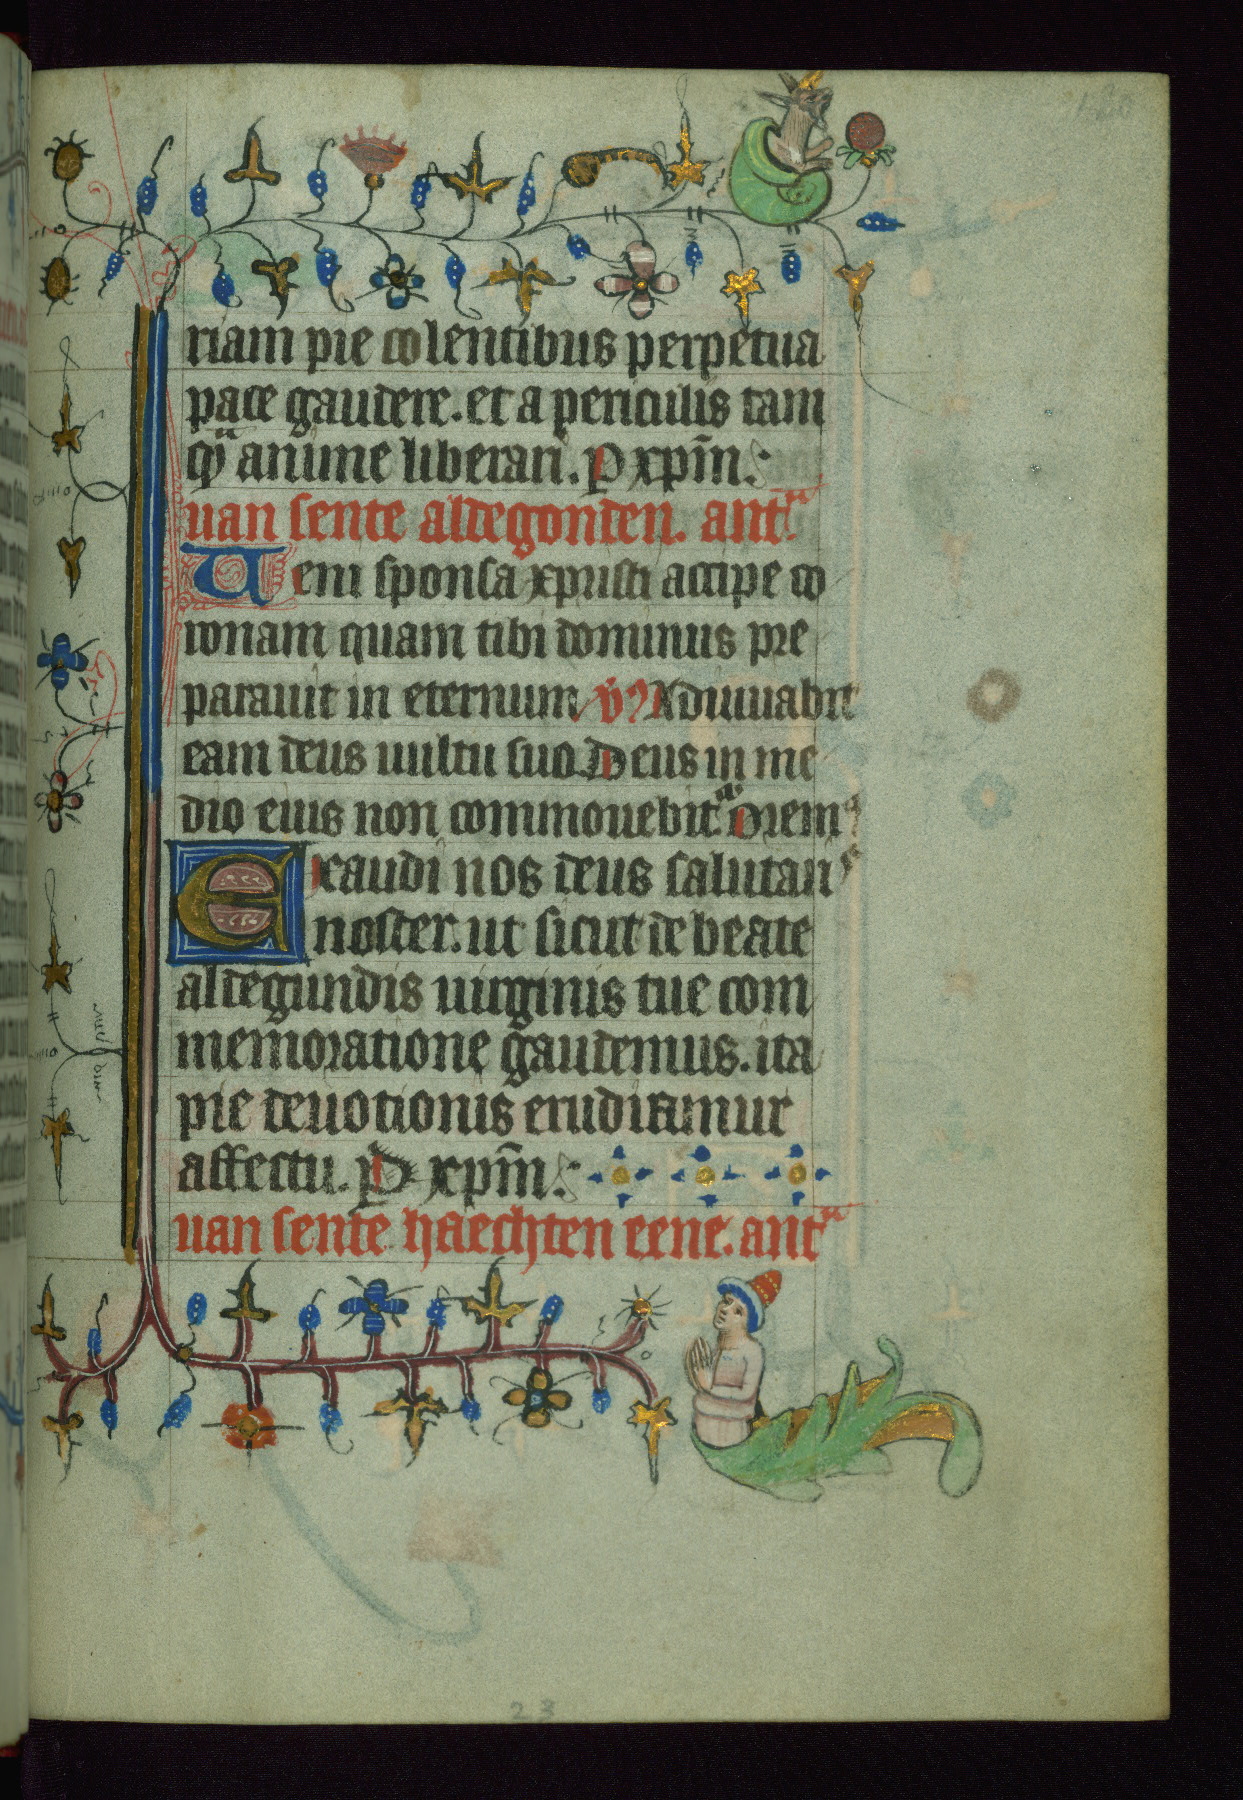 riam pie colentibus perpetua
pace gaudere. et a periculis tam
anime liberari. P xp̄m.
uan sente aldegonden. antᵃ
Veni sponsa xpristi accipe co
ronam quam tibi dominus pre
parauit in eternum v̄ Adiuuabit
eam deus uultu suo Deus in me
dio eius non commouebitᵃ Orem
Exaudi nos deus salutari
noster. ut sicut de beate
aldegundis uirginis tue com
memoratione gaudemus. ita
pie deuotionis erudiamur
affectu. P xp̄m.
uan sente haechten eene. antᵃ
23